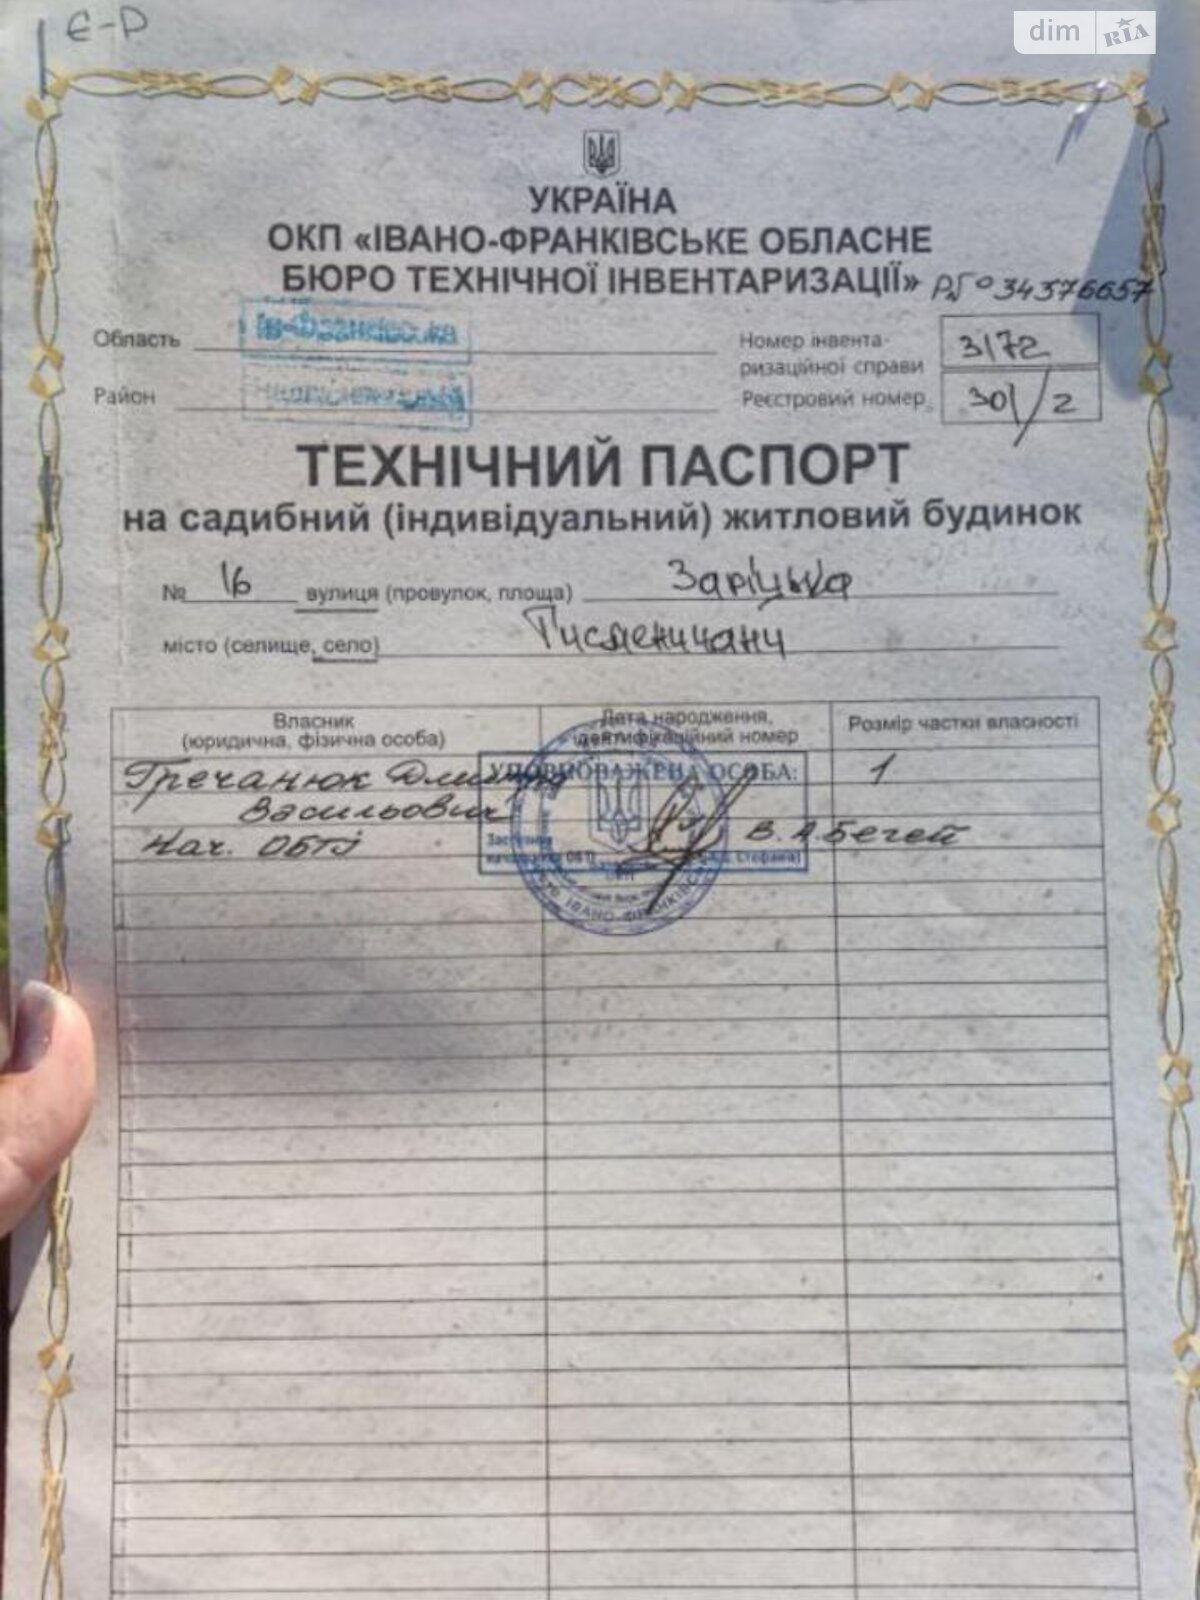 Є-Р
dim RIA
УКРАЇНА
ОКП «ІВАНО-ФРАНКІВСЬКЕ ОБЛАСНЕ
БЮРО ТЕХНІЧНОЇ ІНВЕНТАРИЗАЦІЇ» 34376657
Область Номер інвента-
ризаційної справи 3172
Район Реєстровий номер 301/2
ТЕХНІЧНИЙ ПАСПОРТ
на садибний (індивідуальний) житловий будинок
№ 16 вулиця (провулок, площа) Заріцька
місто (селище, село) Тисменичани
Власник
(юридична, фізична особа)
Дата народження,
ідентифікаційний номер
Розмір частки власності
Гречанюк 1
Васильович
Нач. ОБТІ В. А. Бегей
УПОВНОВАЖЕНА ОСОБА: